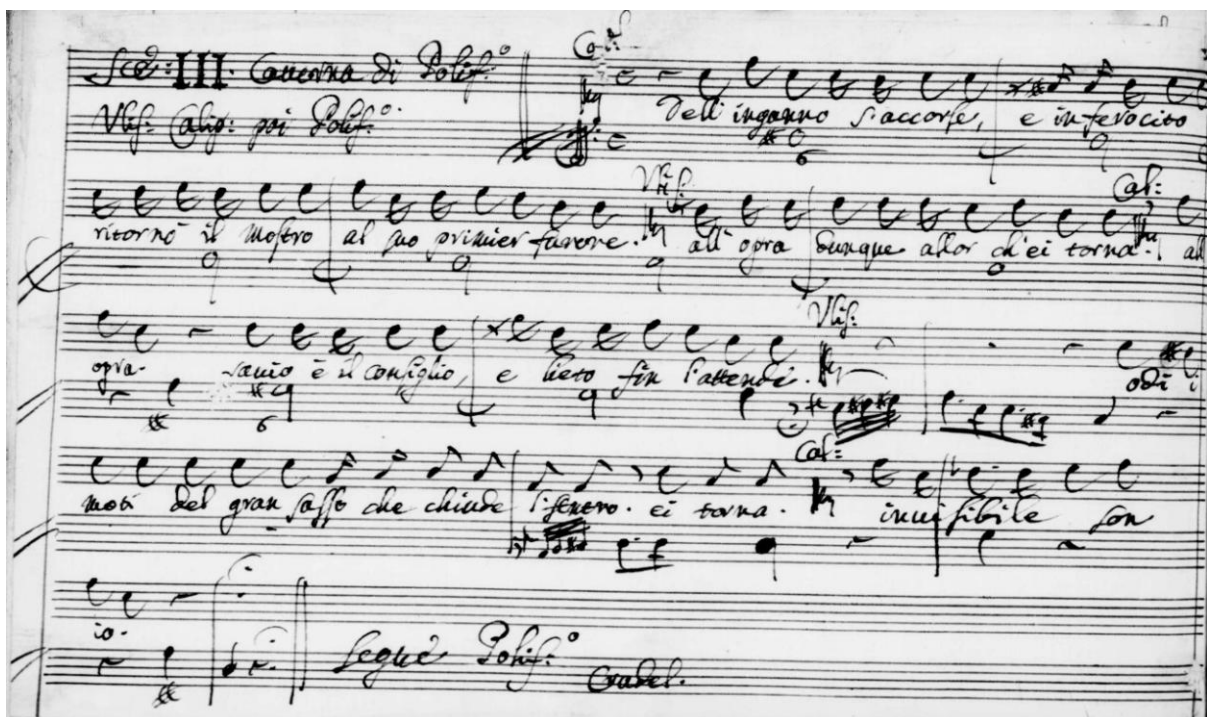 Sce: III. Cauerna di Polif.º
Cal:
Vlis: Calip: poi Polif.º
Dell inganno s'accorse, e inferocito
Vlis: Cal:
ritornò il mostro al suo primier furore. all' opra dunque allor ch'ei torna. all
Vlis:
opra. sauio è il consiglio, e lieto fin l'attende. odi i
Cal:
moti del gran sasso che chiude ei torna. inuisibile son
io.
Segue Polif.º
Crudel.